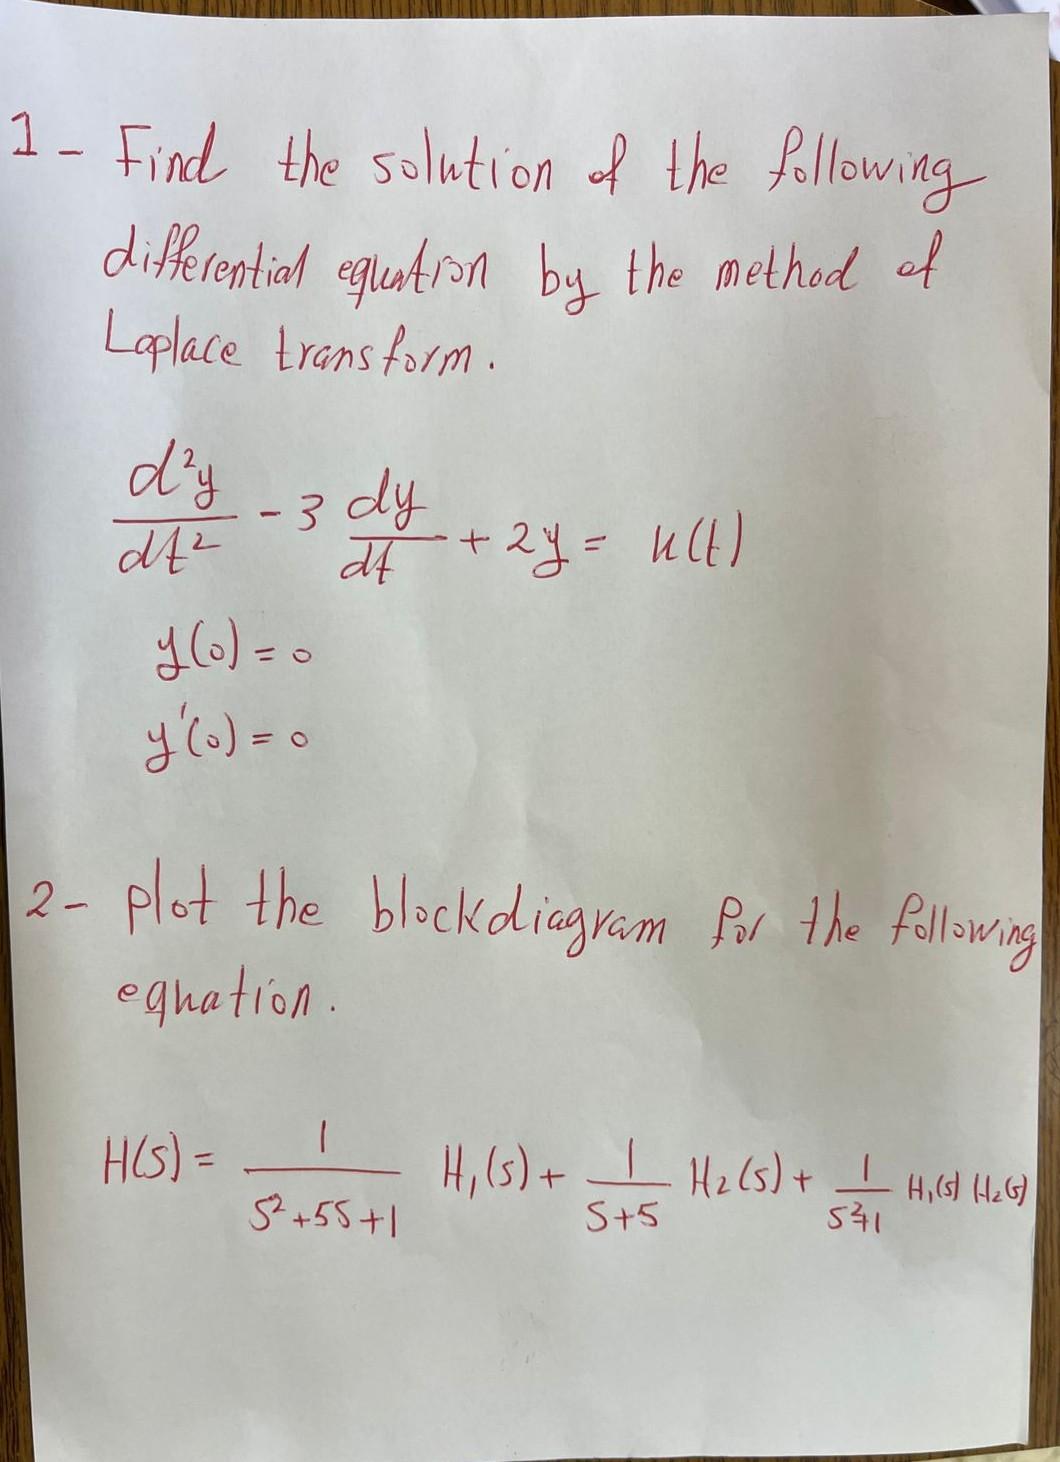 1- Find the solution of the following
differential equation by the method of
Laplace transform.
d²y/dt² - 3 dy/dt + 2y = u(t)
y(0) = 0
y'(0) = 0
2- plot the blockdiagram for the following
equation.
H(s) = 1/(s²+5s+1) H₁(s) + 1/(s+5) H₂(s) + 1/(s²+1) H₁(s) H₂(s)